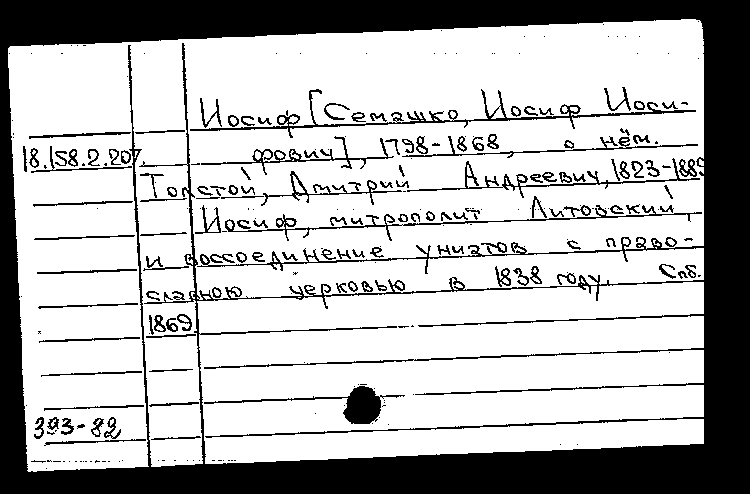 Иосиф [Семашко, Иосиф Иоси-
18.158.2.207. фович], 1798-1868, о нём.
Толстой, Дмитрий Андреевич, 1823-1889
Иосиф, митрополит Литовский,
и воссоединение униатов с право-
славною церковью в 1838 году. Спб.
1869.
393-82